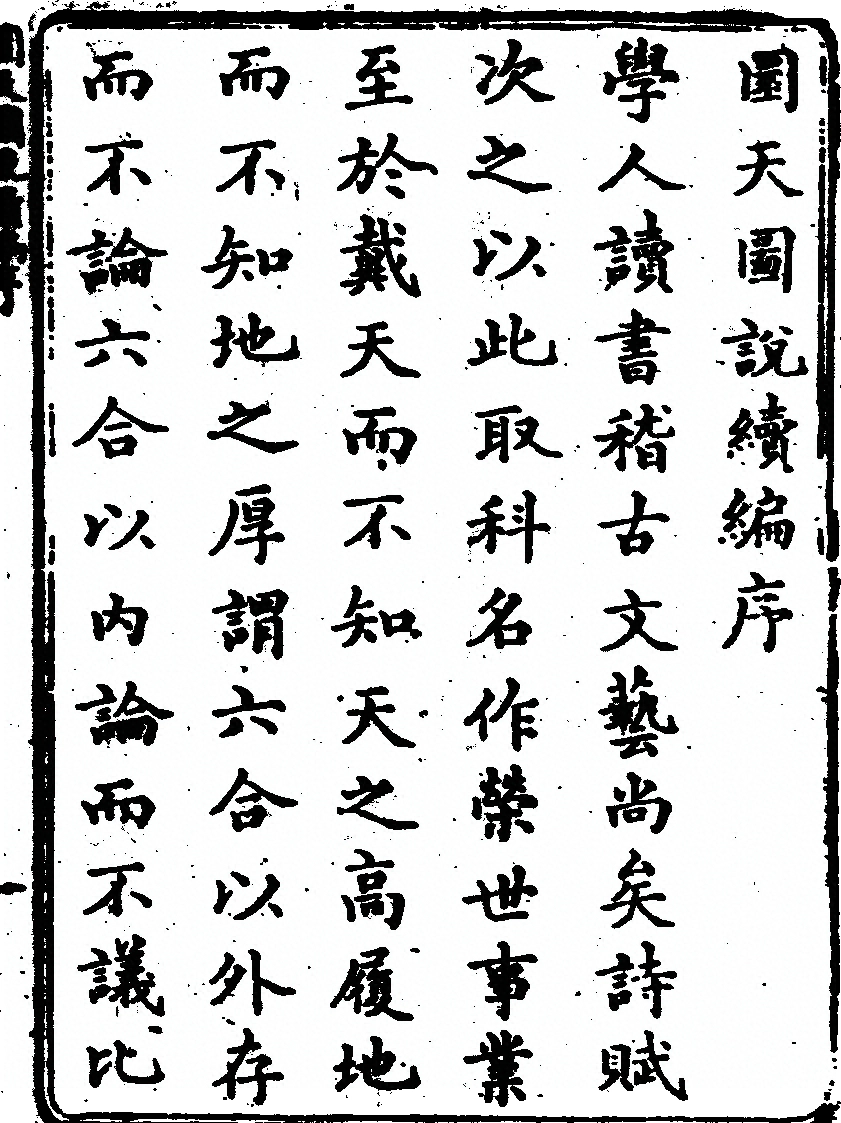 圜天圖說續編序
學人讀書稽古文藝尚矣詩賦
次之以此取科名作榮世事業
至於戴天而不知天之高履地
而不知地之厚謂六合以外存
而不論六合以內論而不議比